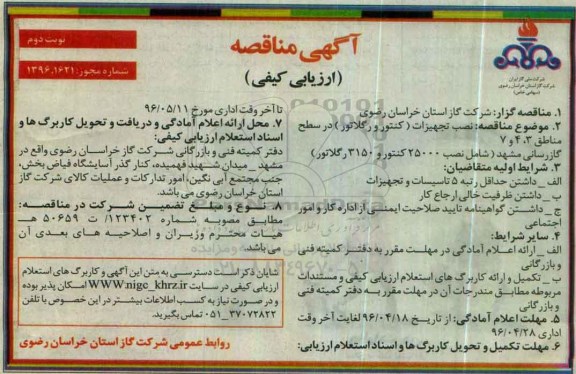 آگهی مناقصه
(ارزیابی کیفی)
نوبت دوم
شماره مجوز: ۱۳۹۶.۱۶۲۱
شرکت ملی گاز ایران
شرکت گاز استان خراسان رضوی
(سهامی خاص)
۱. مناقصه گزار: شرکت گاز استان خراسان رضوی
۲. موضوع مناقصه: نصب تجهیزات (کنتور و رگلاتور) در سطح
مناطق ۴،۳ و ۷
گازرسانی مشهد (شامل نصب ۲۵۰۰۰ کنتور و ۳۱۵۰ رگلاتور)
۳. شرایط اولیه متقاضیان:
الف _ داشتن حداقل رتبه ۵ تاسیسات و تجهیزات
ب _ داشتن ظرفیت خالی ارجاع کار
ج _ داشتن گواهینامه تایید صلاحیت ایمنی از اداره کار و امور
اجتماعی
۴. سایر شرایط:
الف _ ارائه اعلام آمادگی در مهلت مقرر به دفتر کمیته فنی
و بازرگانی
ب _ تکمیل و ارائه کاربرگ های استعلام ارزیابی کیفی و مستندات
مربوطه مطابق مندرجات آن در مهلت مقرر به دفتر کمیته فنی
و بازرگانی
۵. مهلت اعلام آمادگی: از تاریخ ۹۶/۰۴/۱۸ لغایت آخر وقت
اداری ۹۶/۰۴/۲۸
۶. مهلت تکمیل و تحویل کاربرگ ها و اسناد استعلام ارزیابی:
تا آخر وقت اداری مورخ ۹۶/۰۵/۱۱
۷. محل ارائه اعلام آمادگی و دریافت و تحویل کاربرگ ها و
اسناد استعلام ارزیابی کیفی:
دفتر کمیته فنی و بازرگانی شرکت گاز خراسان رضوی واقع در
مشهد _ میدان شهید فهمیده، کنار گذر آسایشگاه فیاض بخش،
جنب مجتمع آبی نگین، امور تدارکات و عملیات کالای شرکت گاز
استان خراسان رضوی می باشد.
۸. نوع و مبلغ تضمین شرکت در مناقصه:
مطابق مصوبه شماره ۱۲۳۴۰۲/ ت ۵۰۶۵۹ هـ
هیات محترم وزیران و اصلاحیه های بعدی آن
می باشد.
شایان ذکر است دسترسی به متن این آگهی و کاربرگ های استعلام
ارزیابی کیفی در سایت WWW.nigc_khrz.ir امکان پذیر بوده
و در صورت نیاز به کسب اطلاعات بیشتر در این خصوص با تلفن
۰۵۱_۳۷۰۷۲۸۲۲ تماس بگیرید.
روابط عمومی شرکت گاز استان خراسان رضوی